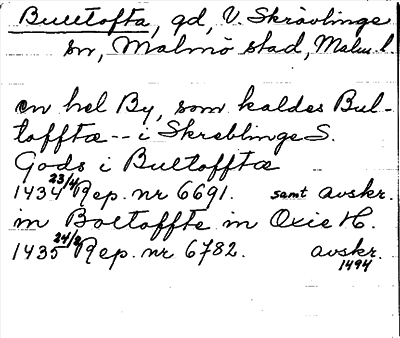 Bulltofta, gd, V. Skrävlinge
sn, Malmö stad, Malm. l.
en hel By, som kaldes Bul-
tofftæ -- i Skreblinge S.
Gods i Bultofftæ
1434 23/4 Rep. nr 6691. samt avskr.
in Boltoffte in Oxie H.
1435 24/2 Rep. nr 6782. avskr.
1494